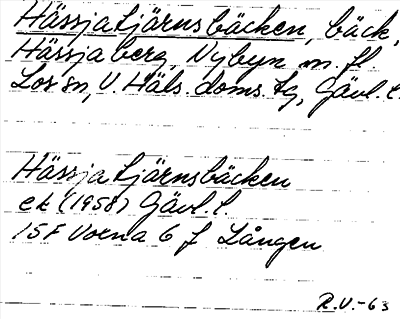 Hässjatjärnsbäcken, bäck,
Hässjaberg, Nybyn m. fl
Los sn, V. Häls. doms. tg, Gävl. l.
Hässjatjärnsbäcken
ek (1958) Gävl. l.
15F Voxna 6 f Lången
R.V.-63